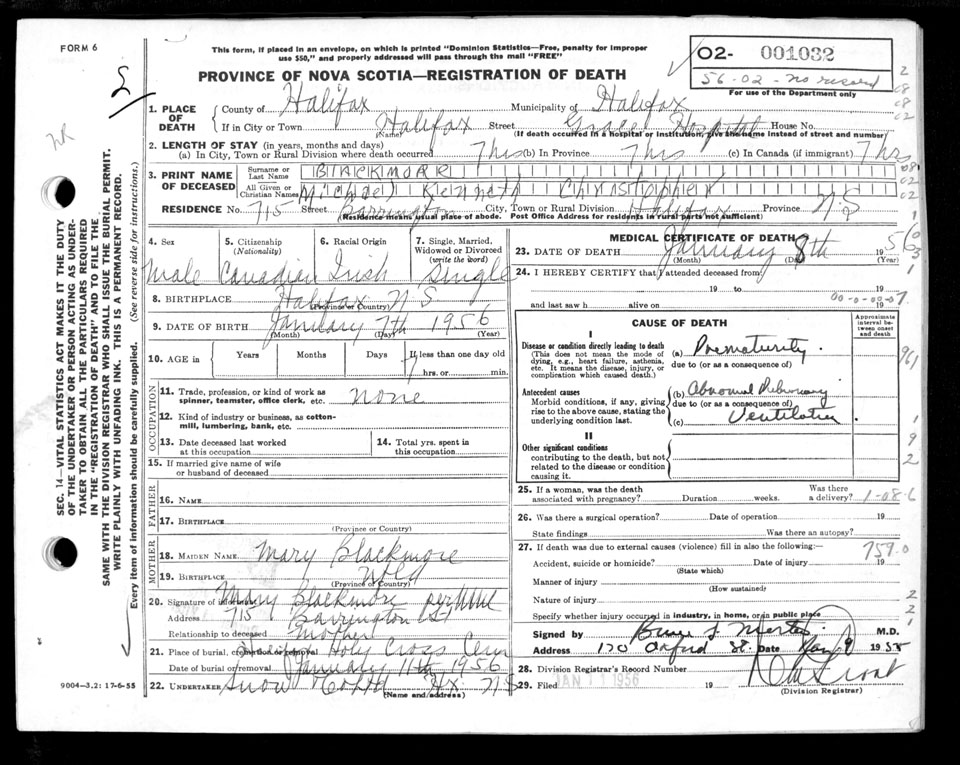 FORM 6
This form, if placed in an envelope, on which is printed "Dominion Statistics—Free, penalty for improper
use $50," and properly addressed will pass through the mail "FREE"
PROVINCE OF NOVA SCOTIA—REGISTRATION OF DEATH
02- 001032
56-02-no record
For use of the Department only
1. PLACE OF DEATH County of Halifax Municipality of Halifax
If in City or Town Halifax Street Grace Hospital House No.
(Name) (If death occurred in a hospital or institution, give the name instead of street and number)
2. LENGTH OF STAY (in years, months and days)
(a) In City, Town or Rural Division where death occurred 7 hrs (b) In Province 7 hrs (c) In Canada (if immigrant) 7 hrs
3. PRINT NAME OF DECEASED Surname or Last Name BLACKMORE
All Given or Christian Names Michael Kenneth Christopher
RESIDENCE No. 715 Street Barrington City, Town or Rural Division Halifax Province N.S.
(Residence means usual place of abode. Post Office Address for residents in rural parts not sufficient)
4. Sex 5. Citizenship (Nationality) 6. Racial Origin 7. Single, Married, Widowed or Divorced (write the word)
Male Canadian Irish Single
8. BIRTHPLACE Halifax N S
(Province or Country)
9. DATE OF BIRTH January 7th 1956
(Month) (Day) (Year)
10. AGE in Years Months Days If less than one day old
7 hrs. or min.
OCCUPATION
11. Trade, profession, or kind of work as
spinner, teamster, office clerk, etc. none
12. Kind of industry or business, as cotton-
mill, lumbering, bank, etc.
13. Date deceased last worked
at this occupation
14. Total yrs. spent in
this occupation
15. If married give name of wife
or husband of deceased
FATHER
16. NAME
17. BIRTHPLACE
(Province or Country)
MOTHER
18. MAIDEN NAME Mary Blackmore
19. BIRTHPLACE Nfld
(Province or Country)
20. Signature of informant Mary Blackmore per
Address 715 Barrington St
Relationship to deceased Mother
21. Place of burial, cremation or removal Holy Cross Cem
Date of burial or removal January 11th 1956
22. UNDERTAKER Snow Co Ltd Hx N S
(Name and address)
9004—3.2: 17-6-55
MEDICAL CERTIFICATE OF DEATH
23. DATE OF DEATH January 8th 1956
(Month) (Day) (Year)
24. I HEREBY CERTIFY that I attended deceased from
19 to 19
and last saw h alive on 00-0-00-07
CAUSE OF DEATH
Approximate interval between onset and death
I
Disease or condition directly leading to death
(This does not mean the mode of
dying, e.g., heart failure, asthenia,
etc. It means the disease, injury, or
complication which caused death.)
(a) Prematurity
due to (or as a consequence of)
Antecedent causes
Morbid conditions, if any, giving
rise to the above cause, stating the
underlying condition last.
(b) Abnormal Pulmonary
due to (or as a consequence of)
(c) Ventilation
II
Other significant conditions
contributing to the death, but not
related to the disease or condition
causing it.
25. If a woman, was the death
associated with pregnancy? Duration weeks. Was there
a delivery? 1-086
26. Was there a surgical operation? Date of operation 19
State findings Was there an autopsy?
27. If death was due to external causes (violence) fill in also the following:— 759.0
Accident, suicide or homicide? Date of injury 19
(State which)
Manner of injury
(How sustained)
Nature of injury
Specify whether injury occurred in industry, in home, or in public place
Signed by M.D.
Address 170 Oxford St. Date Jan 9 1955
28. Division Registrar's Record Number
29. Filed JAN 11 1956 19
(Division Registrar)
SEC. 14—VITAL STATISTICS ACT MAKES IT THE DUTY
OF THE UNDERTAKER OR PERSON ACTING AS UNDER-
TAKER TO OBTAIN ALL THE PARTICULARS REQUIRED
IN THE "REGISTRATION OF DEATH" AND TO FILE THE
SAME WITH THE DIVISION REGISTRAR WHO SHALL ISSUE THE BURIAL PERMIT.
WRITE PLAINLY WITH UNFADING INK. THIS IS A PERMANENT RECORD.
Every item of information should be carefully supplied. (See reverse side for instructions.)